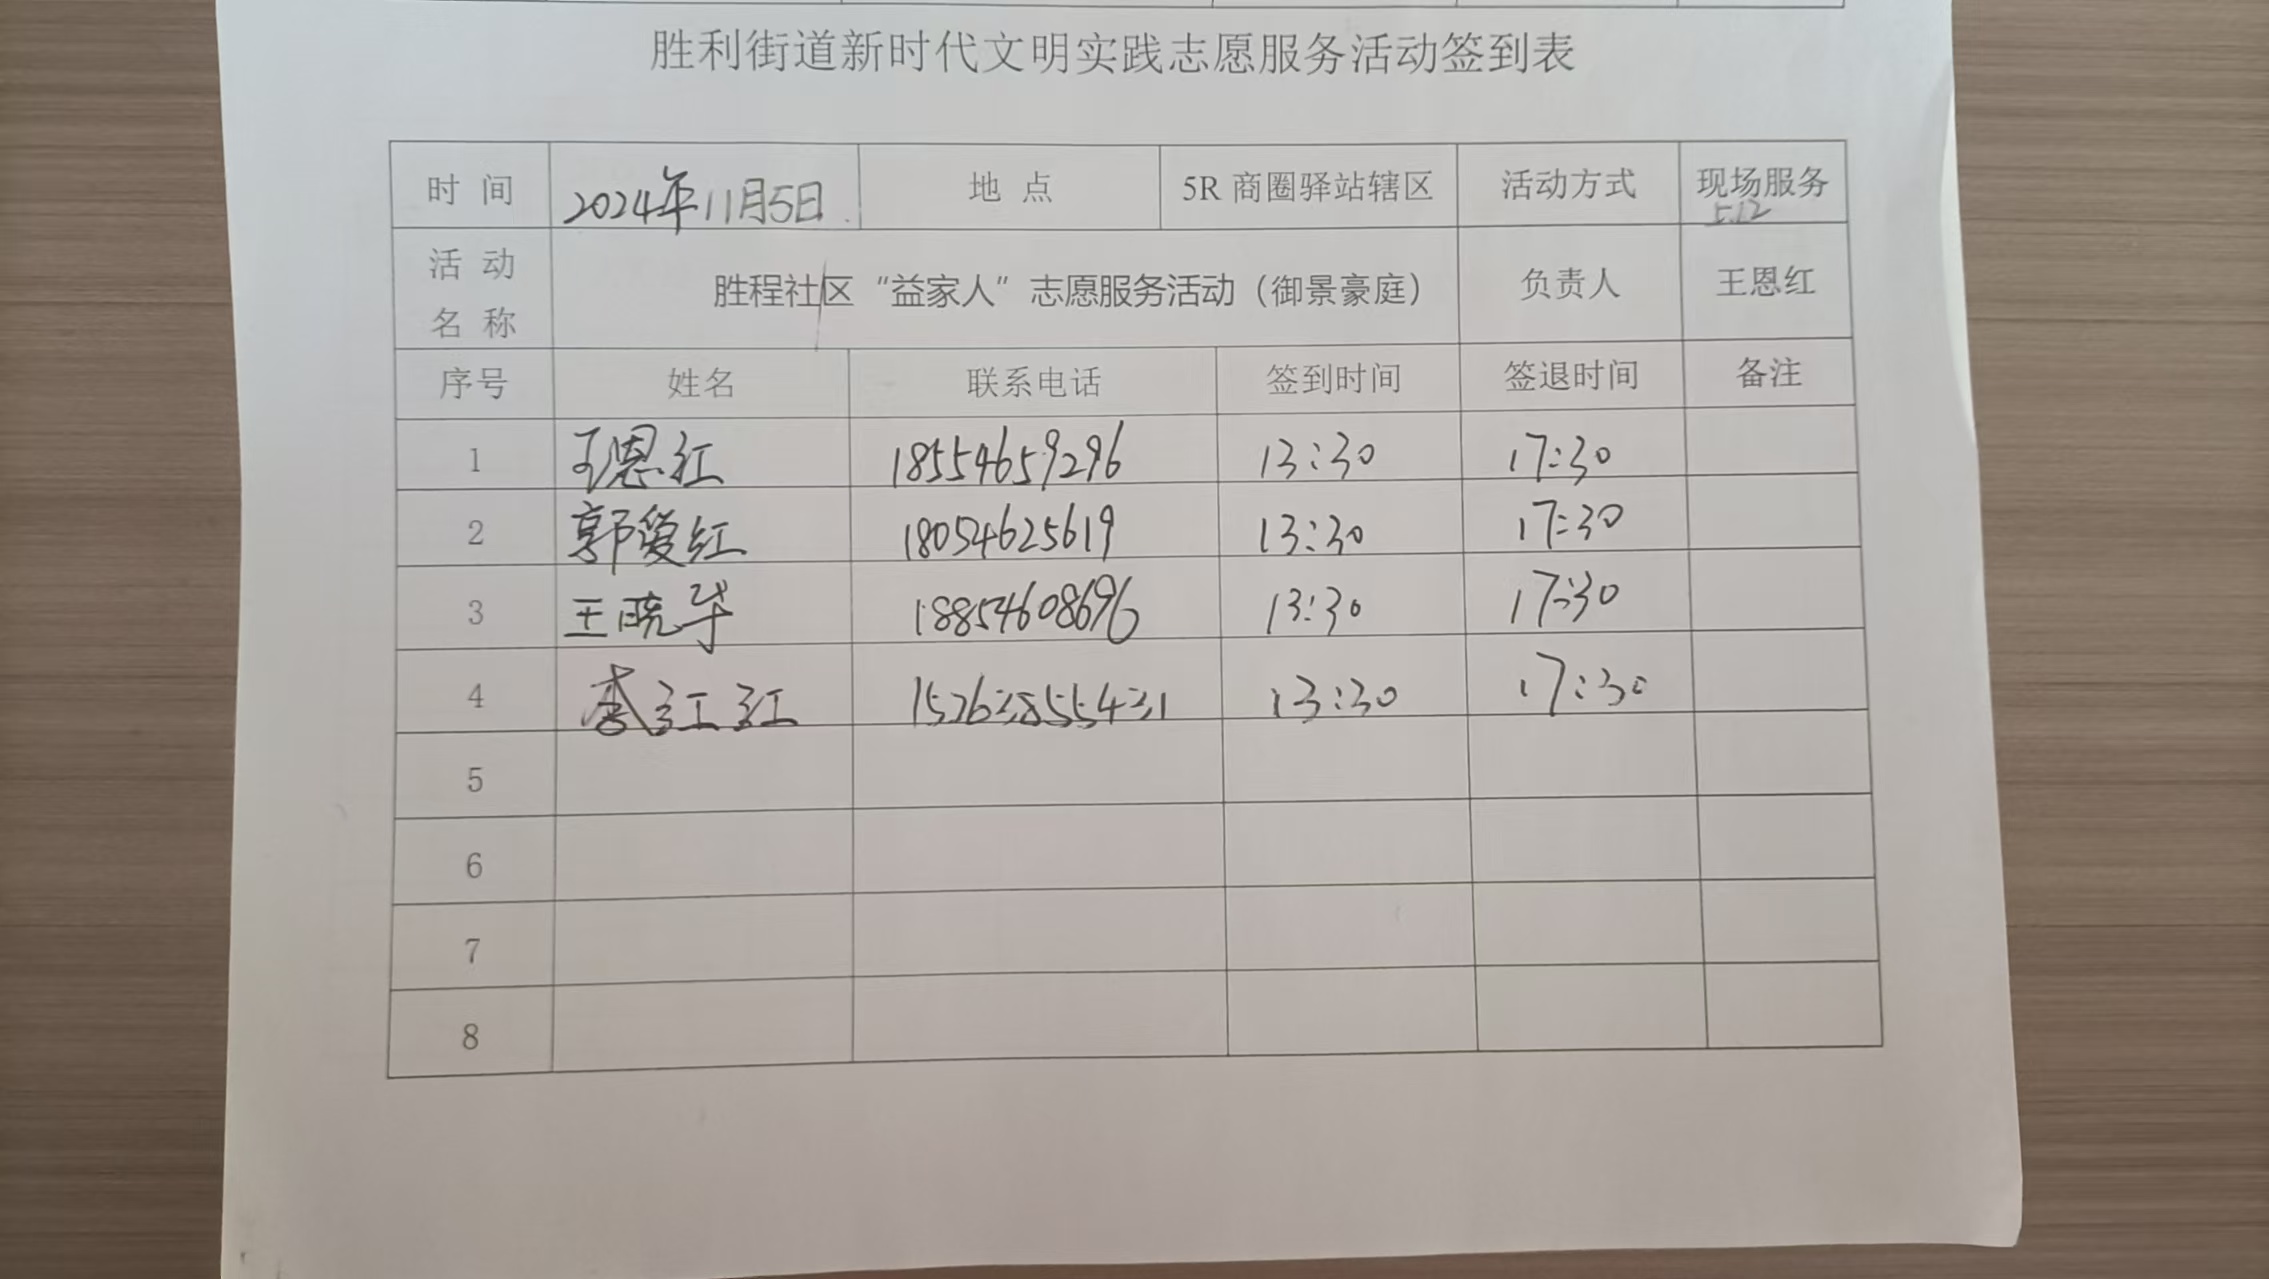 胜利街道新时代文明实践志愿服务活动签到表
时 间 2024年11月5日 地 点 5R 商圈驿站辖区 活动方式 现场服务
活 动 名 称 胜程社区“益家人”志愿服务活动（御景豪庭） 负责人 王恩红
序号 姓名 联系电话 签到时间 签退时间 备注
1 王恩红 18554659296 13:30 17:30
2 郭爱红 18054625619 13:30 17:30
3 王晓华 18854608696 13:30 17:30
4 李红红 15263855431 13:30 17:30
5
6
7
8